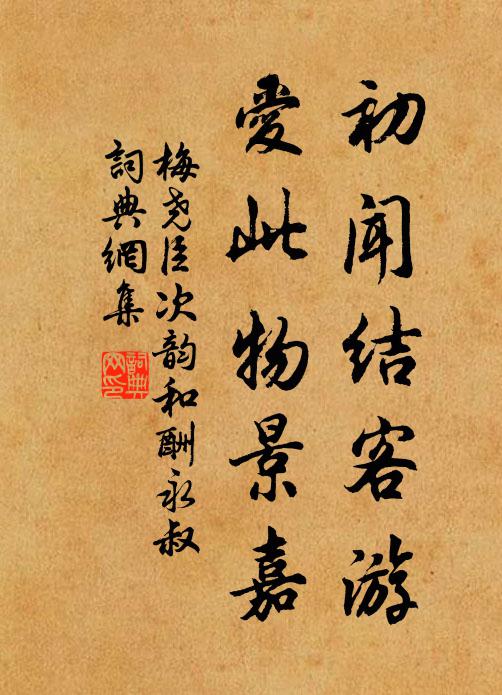 初闻结客游
爱此物景嘉
梅尧臣次韵和酬永叔
詞典網集
詞典网印